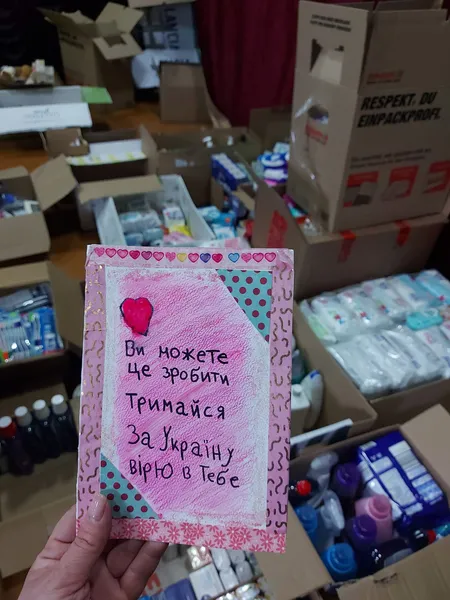 RESPEKT, DU
EINPACKPROFI.
Ви можете
це зробити
Тримайся
За Україну
вірю в Тебе